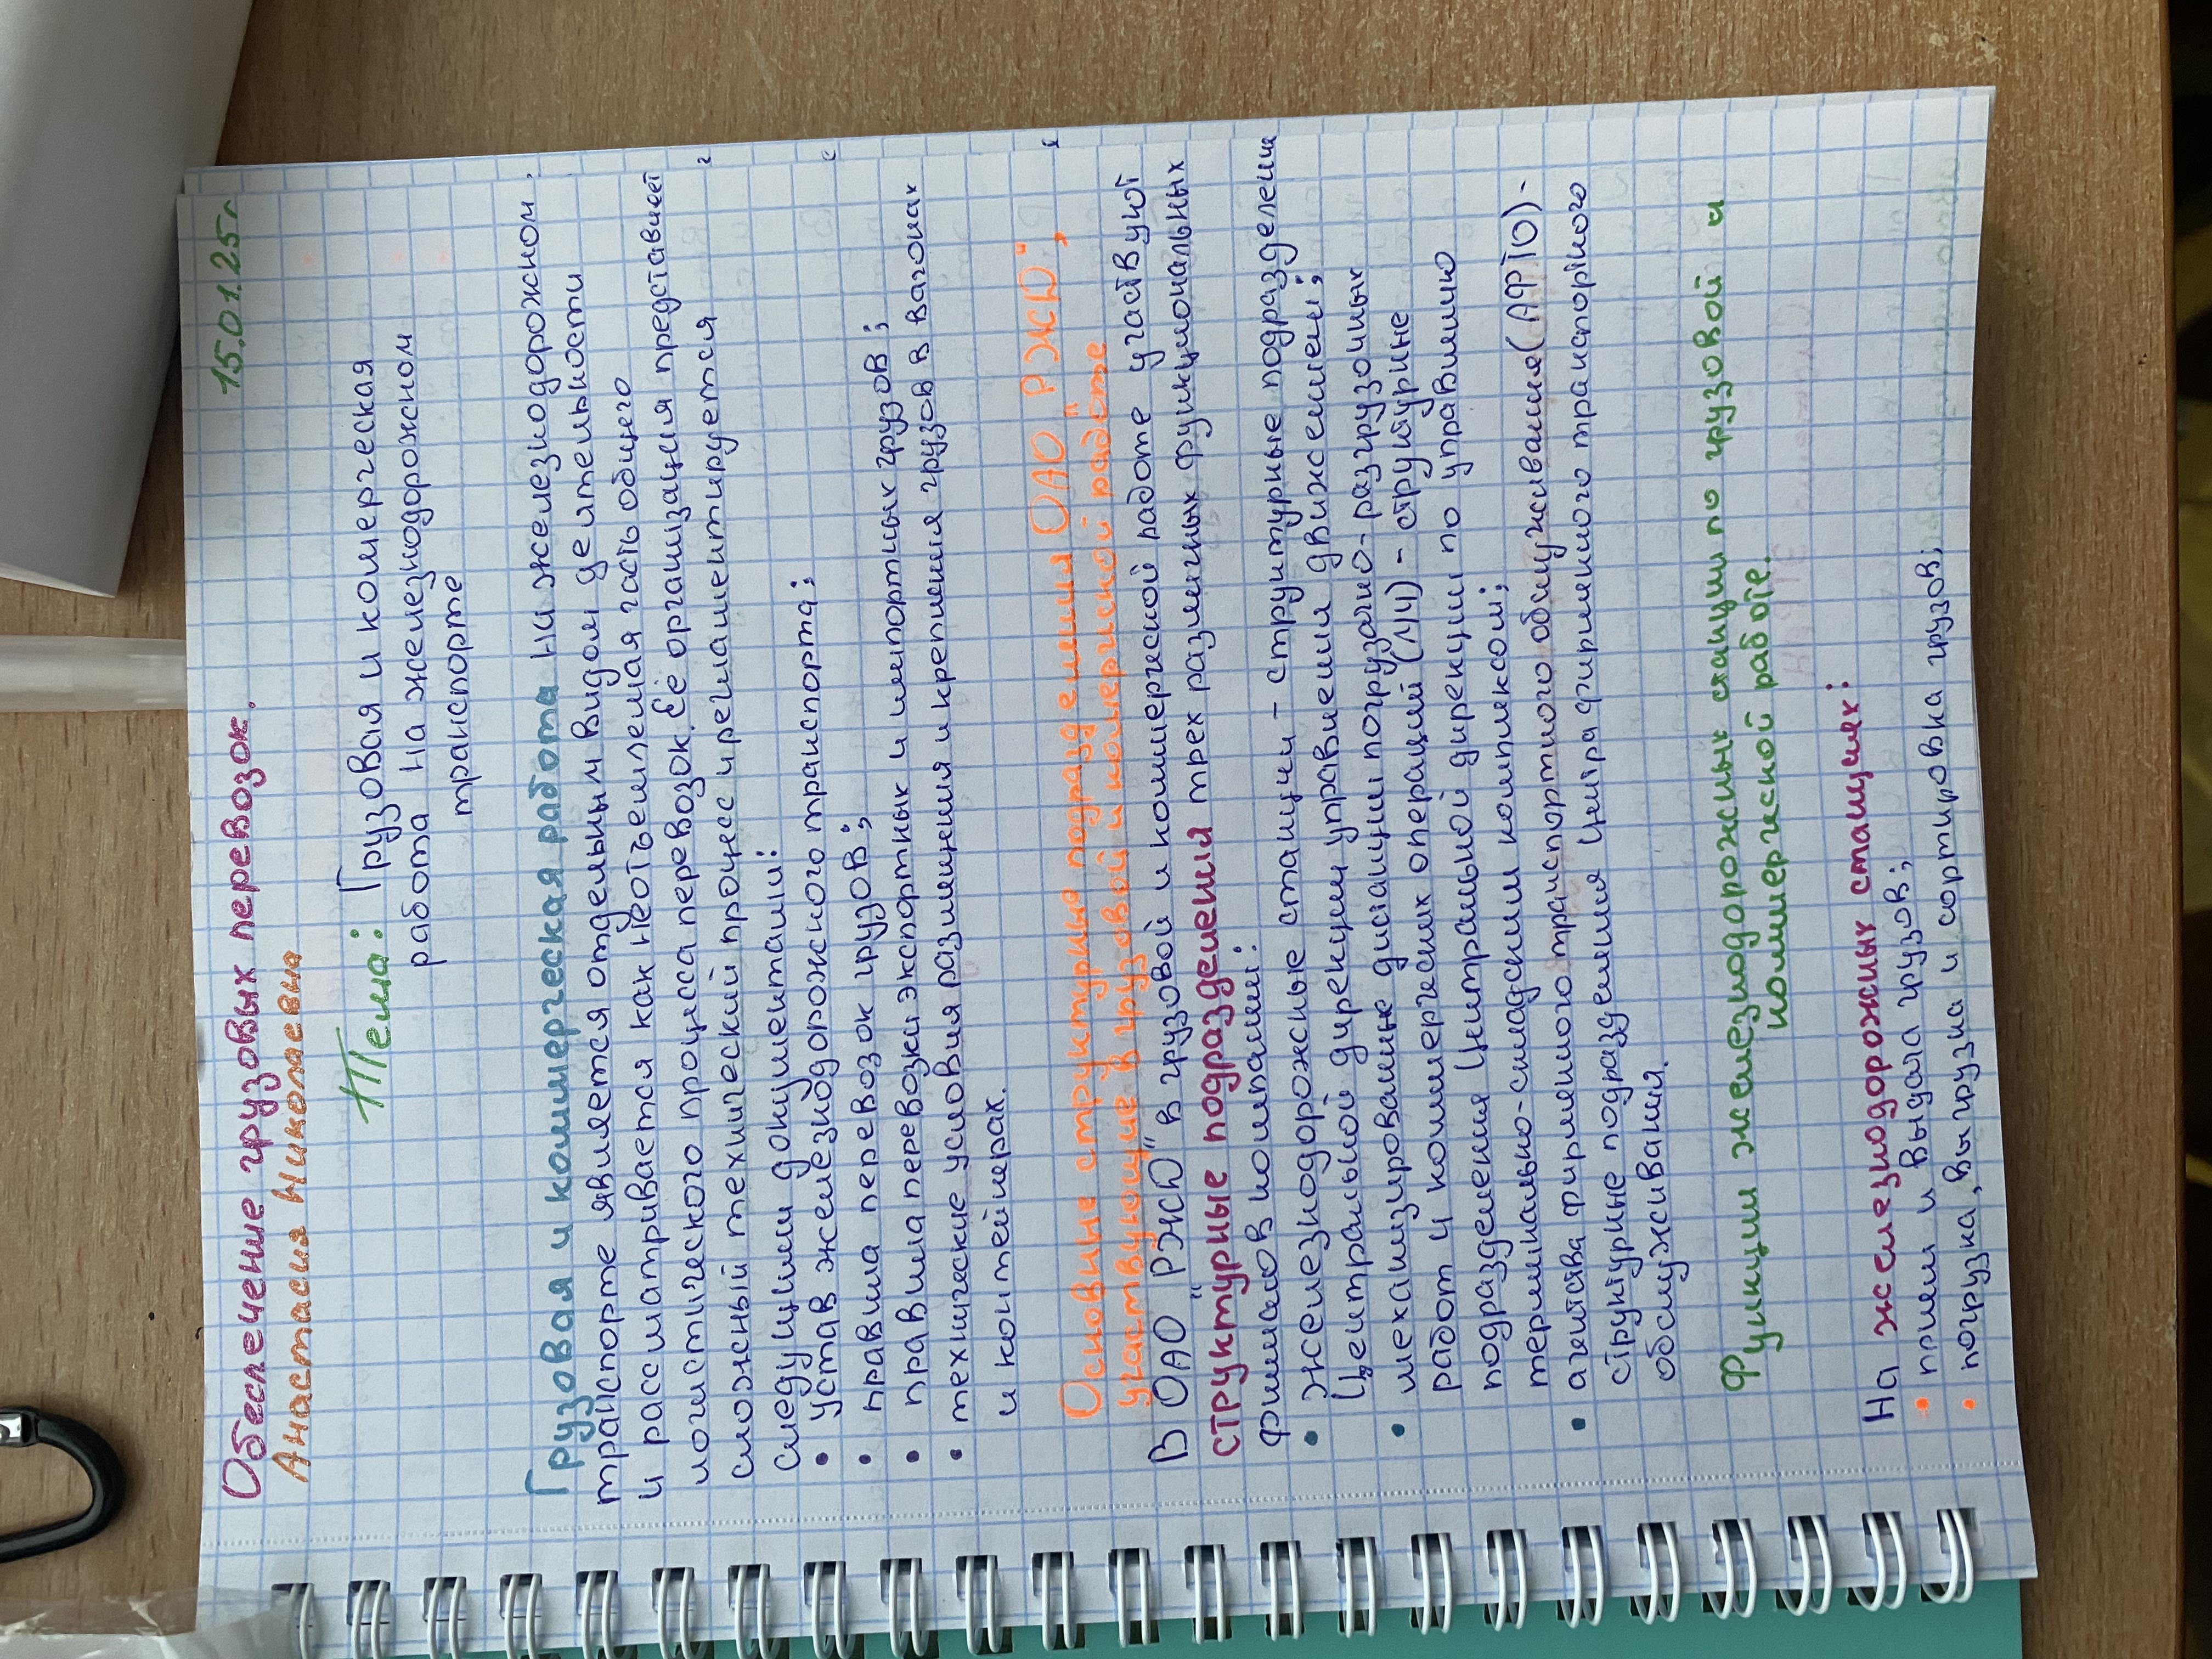 15.01.25г
Обеспечение грузовых перевозок.
Анастасия Николаевна
Тема: Грузовая и комерческая
работа на железнодорожном
транспорте
Грузовая и коммерческая работа на железнодорожном
транспорте является отдельным видом деятельности
и рассматривается как неотъемлемая часть общего
логистического процесса перевозок. Её организация представляет
сложный технический процесс и регламентируется
следущими документами:
• устав железнодорожного транспорта;
• правила перевозок грузов;
• правила перевозки экспортных и импортных грузов;
• технические условия размещения и крепления грузов в вагонах
и контейнерах.
Основные структурные подразделения ОАО "РЖД",
участвующие в грузовой и комерческой работе
В ОАО "РЖД" в грузовой и коммерческой работе участвуют
структурные подразделения трех различных функциональных
филиалов компании:
• железнодорожные станции - структурные подразделения
Центральной дирекции управления движением;
• механизированные дистанции погрузочно-разгрузочных
работ и коммерческих операций (МЧ) - структурные
подразделения Центральной дирекции по управлению
терминально-складским комплексом;
• агентства фирменного транспортного обслуживания (АФТО) -
структурные подразделения Центра фирменного транспортного
обслуживания.
Функции железнодорожных станций по грузовой и
коммерческой работе.
На железнодорожных станциях:
• прием и выдача грузов;
• погрузка, выгрузка и сортировка грузов;